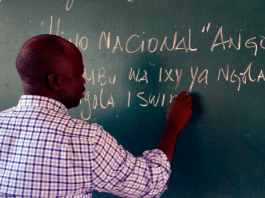 Hino NACIONAL "ANGO
MBU WA IXY YA NGOLA
gola I SWI